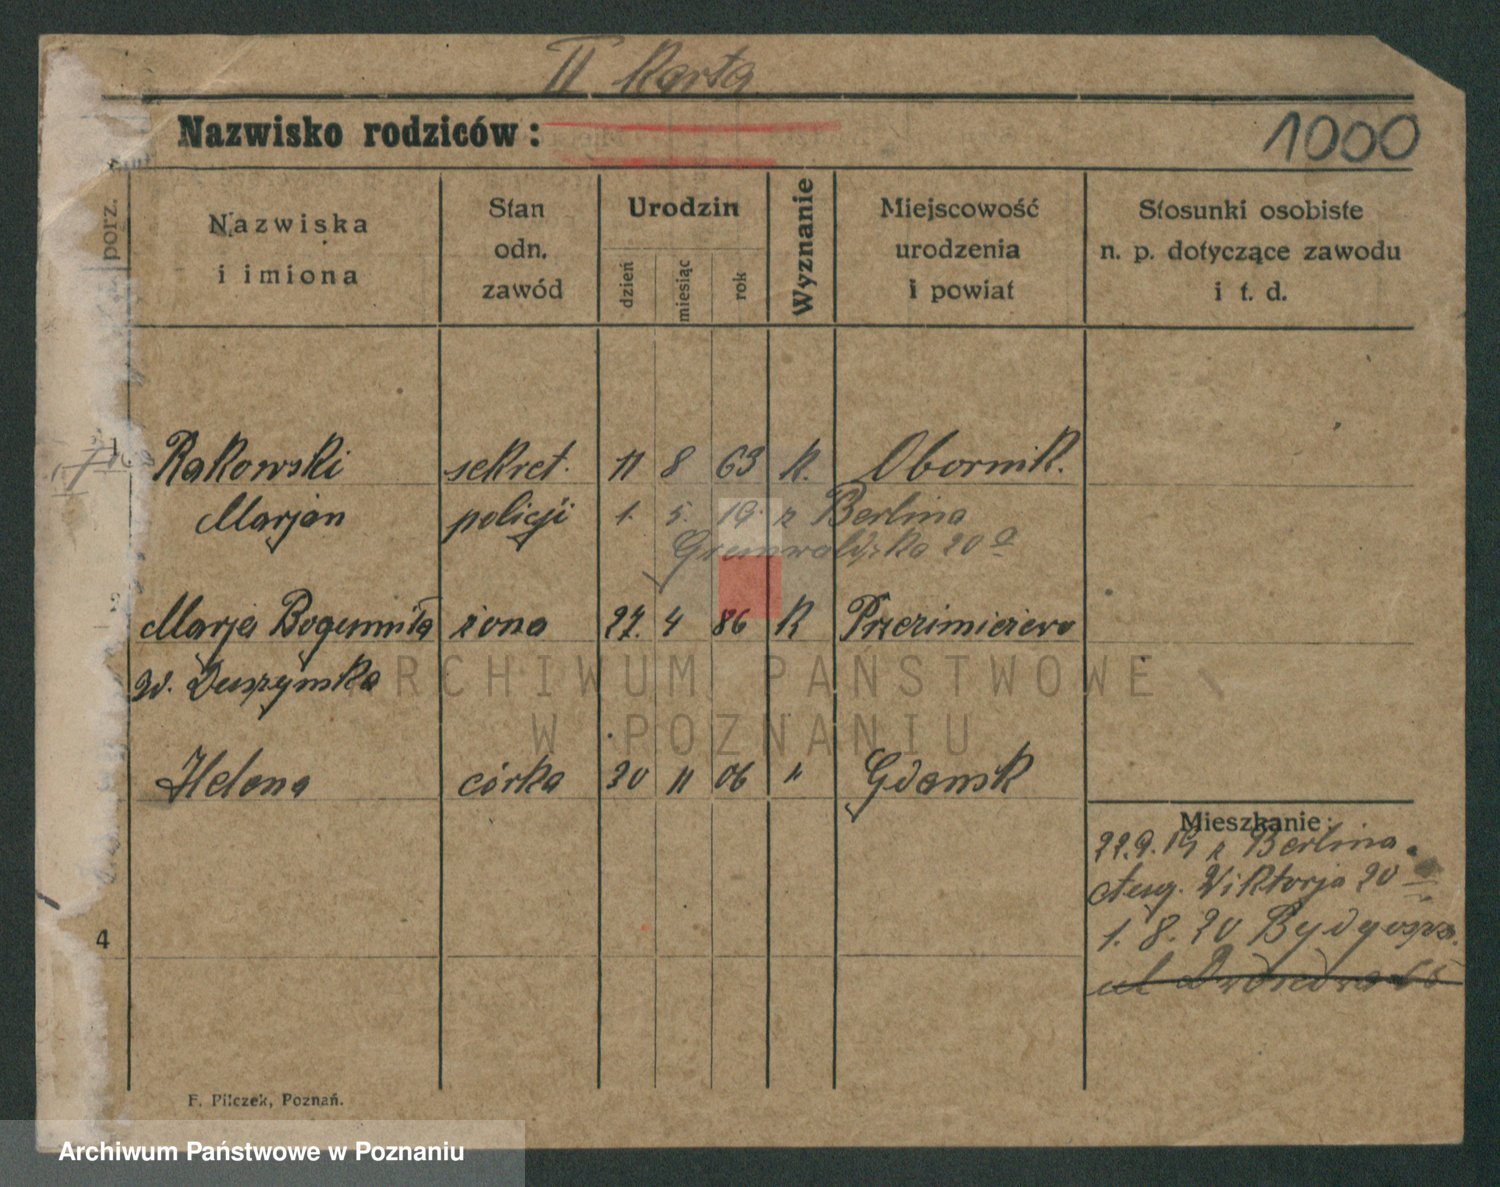 II Karta
Nazwisko rodziców: 1000
porz.
Nazwiska i imiona
Stan odn. zawód
Urodzin
dzień miesiąc rok
Wyznanie
Miejscowość urodzenia i powiat
Stosunki osobiste n. p. dotyczące zawodu i t. d.
Rakowski sekret. 11 8 63 K. Obornik.
Marjan policji 1. 5. 19. z Berlina
Grunwaldzka 20 a
Marja Bogumiła żona 27. 4 86 K
zd. Duszyńska
Helena córka 30 11 06 " Gdańsk
Mieszkanie:
22.9.19 z Berlina
Aug. Viktorja 20
1. 8. 20 Bydgoszcz.
ul
4
F. Pilczek, Poznań.
ARCHIWUM PAŃSTWOWE
W POZNANIU
Archiwum Państwowe w Poznaniu